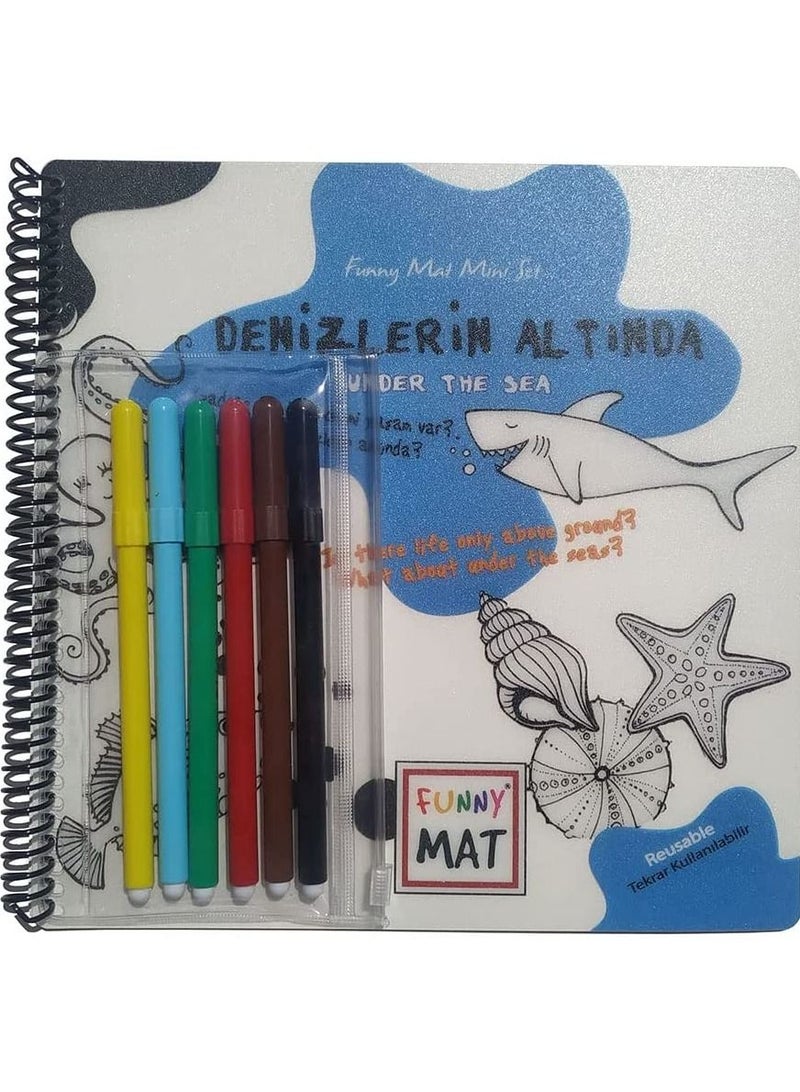 Funny Mat Mini Set
DENİZLERİN ALTINDA
UNDER THE SEA
yaşam var?
there life only above ground?
about under the seas?
FUNNY
MAT
Reusable
Tekrar Kullanılabilir